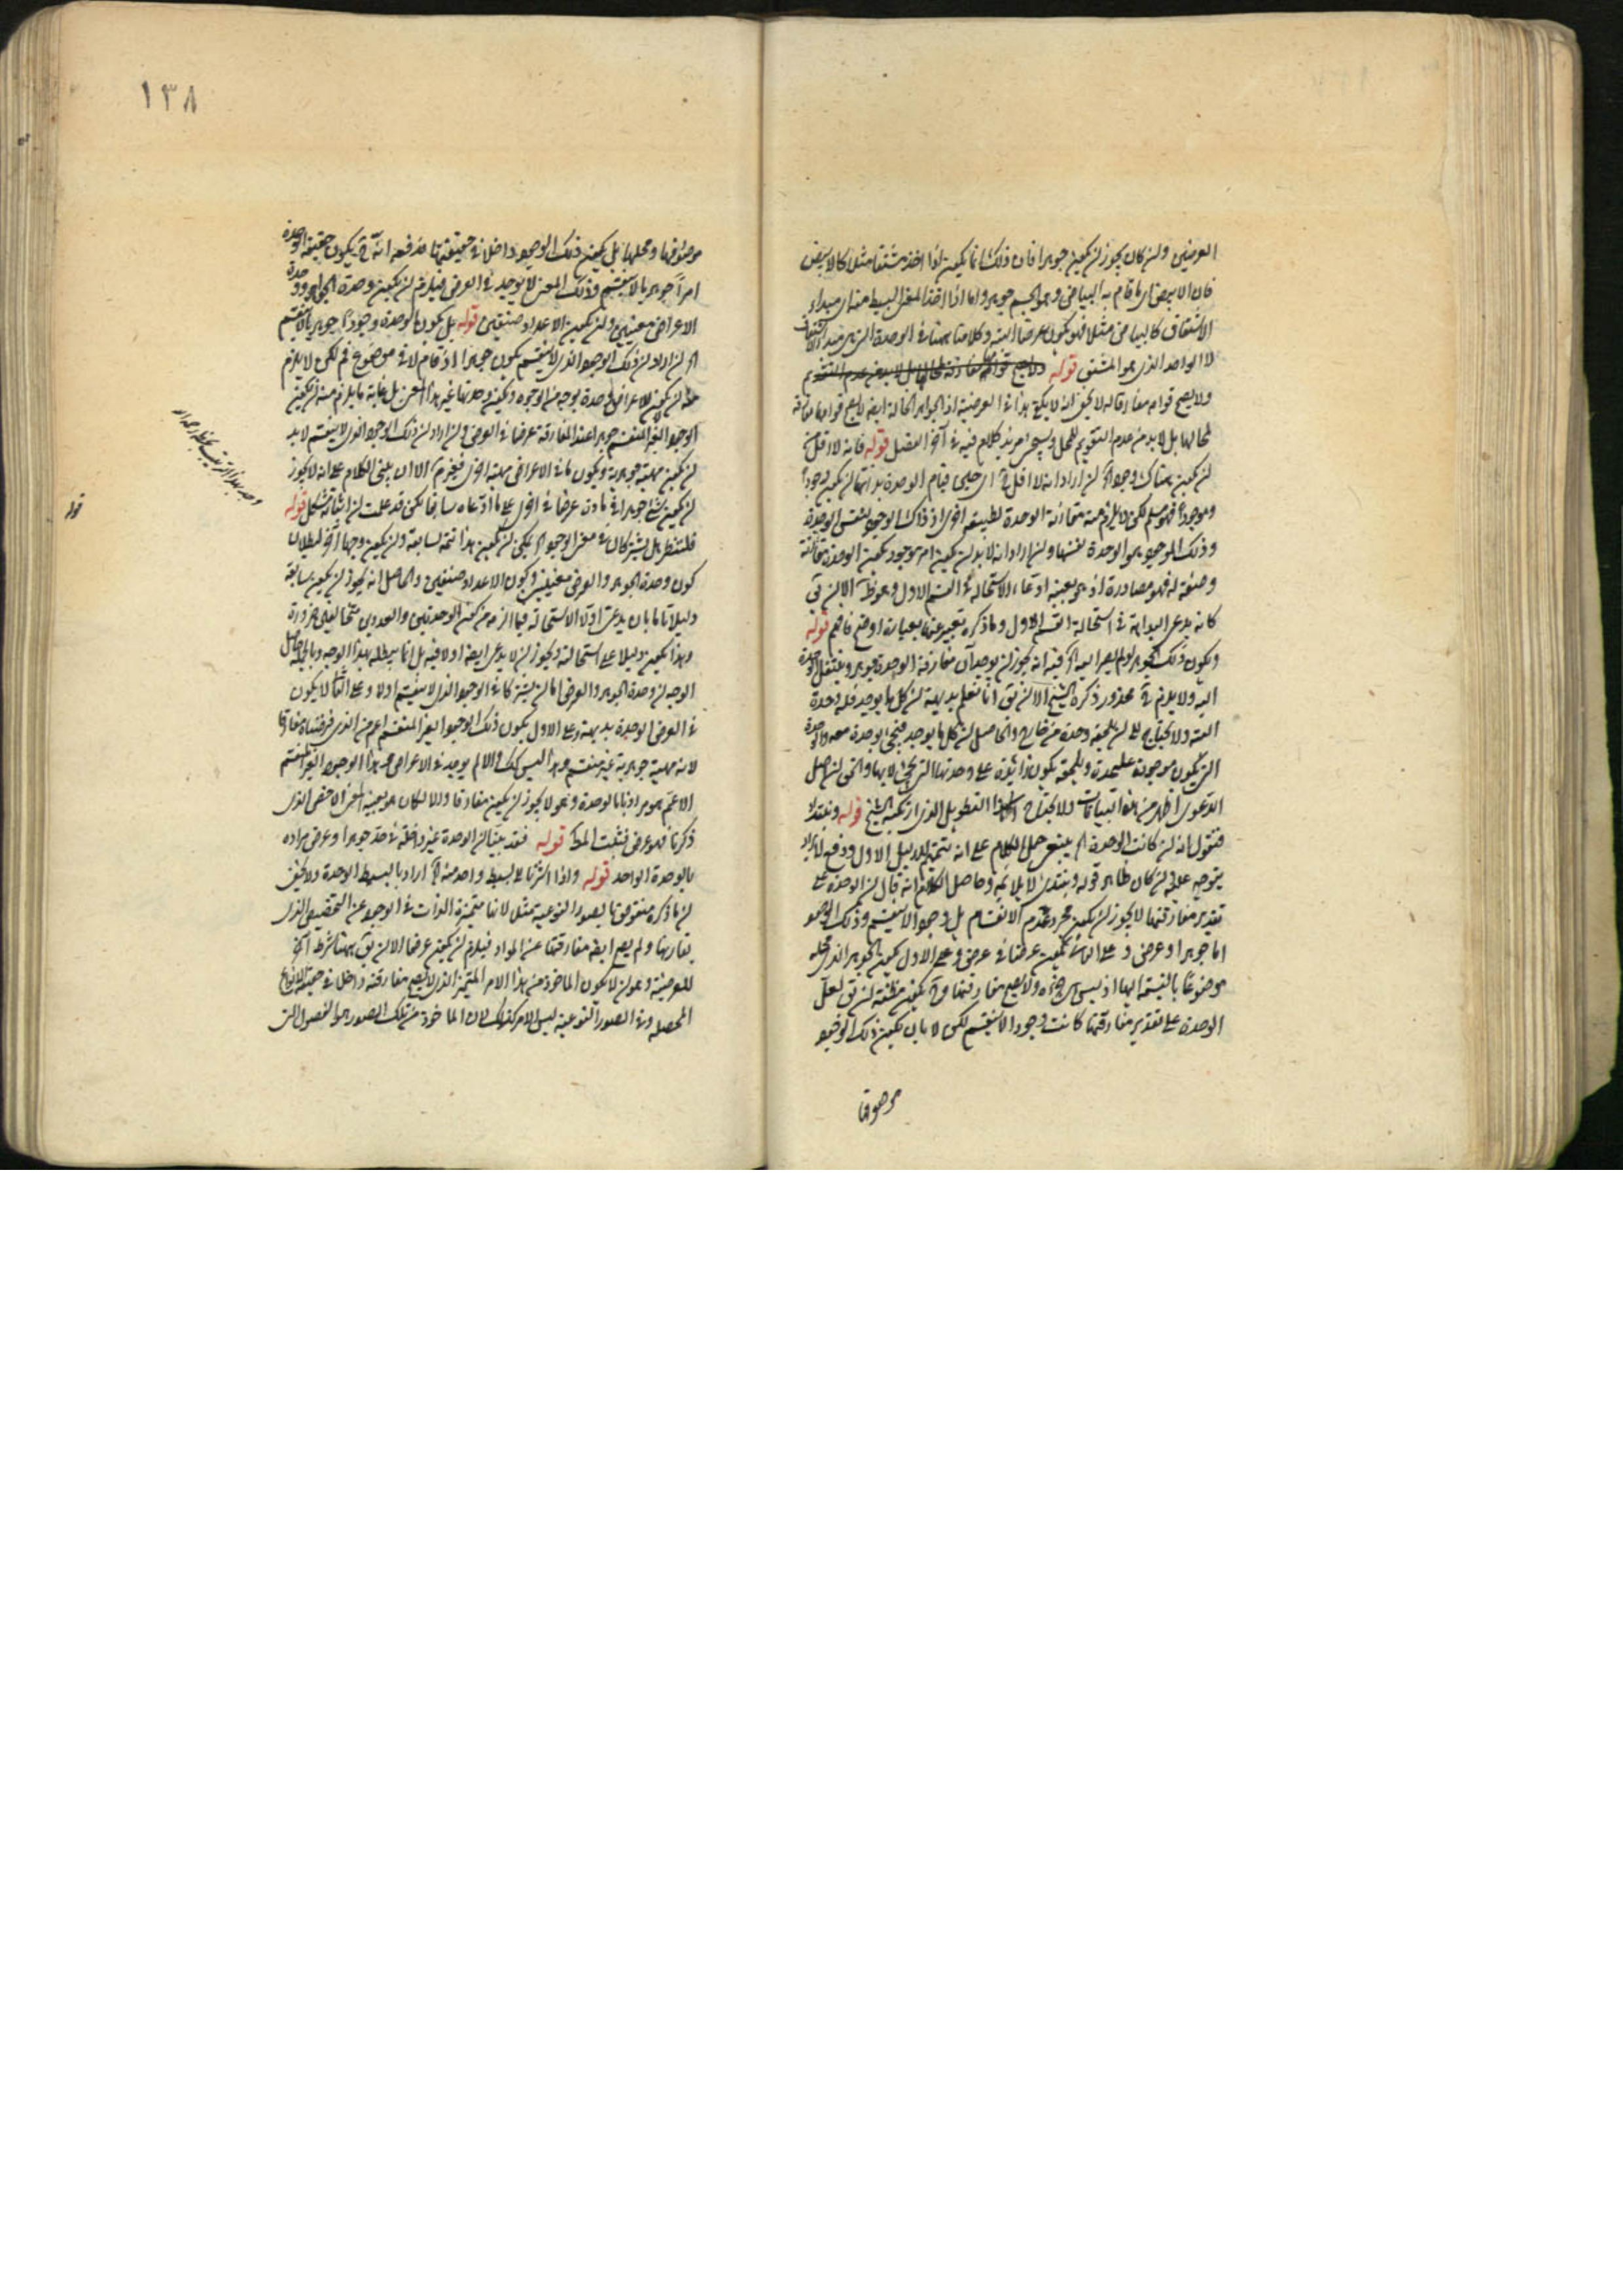 العرضين وان كان يجوز ان يكون جوهرا فان ذلك انما يكون اذا اخذ مشتقا مثلا كالابيض
فان الابيض اى ما قام به البياض وهو الجسم جوهر واما اذا اخذ المعنى البسيط منه اى مبداء
الاشتقاق كالبياض مثلا فهو يكون عرضا البتة وكلامنا هنا فى الوحدة التى هى مبداء الاشتقاق
لا الواحد الذى هو المشتق قوله
ولا يصح قوام مفارقا له لا يخفى ان لا يكفى هذا فى العرضية اذ الجواهر الحالة ايضا لا يصح قوامها مفارقة
لمحالها بل لا بد من عدم التقويم للمحل وسيجئ مزيد كلام فيه فى آخر الفصل قوله فانه لا اقل
ان يكون هناك وجود ان اراد انه لا اقل اى حين قيام الوحدة بذاتها ان يكون وجود
وموجود فهو مسلم لكن لا يلزم منه مقارنة الوحدة لطبيعة اخرى اذ ذلك الوجود لنفس الوحدة
وذلك الموجود هو الوحدة نفسها وان اراد انه لا بد ان يكون امر موجود يكون الوحدة مقارنة
وصفة له فهو مصادرة اذ هو بعينه ادعاء الاستحالة فى القسم الاول وهو ظ الا ان يق
كانه يدعى البداهة فى استحالة القسم الاول وما ذكره تعبير عنها بعبارة اوضح فافهم قوله
ويكون ذلك الجوهر لو لم يصر اليه فيه انه يجوز ان يوجد آن مفارقة الوحدة جوهر وينتقل الوحدة
اليه ولا يلزم محذور ذكره الشيخ الا ان يق انا نعلم بديهة ان كل ما يوجد فله وحدة
البتة ولا يحتاج الى ان يلحقه وحدة من خارج والحاصل ان كل ما يوجد فيجئ بوحدة معه والوحدة
التى يكون موجودة عليحدة ويلحقه يكون زائدة على وحدتها التى يجئ لا بها والحق ان اصل
الدعوى اظهر من هذه البيانات ولا يحتاج الى هذا التطويل الذى ارتكبه الشيخ قوله ونبتدئ
فنقول انه ان كانت الوحدة ينبغى حمل الكلام على انه تتمة للدليل الاول ودفع لايراد
يتوجه عليه وان كان ظاهر قوله ونبتدئ لا يلايمه وحاصل الكلام انه قال ان الوحدة على
تقدير مفارقتها لا يجوز ان يكون مجرد عدم الانقسام بل وجود لا ينقسم وذلك الوجود
اما جوهر او عرض وعلى الثانى يكون عرضا فى عرض وعلى الاول يكون الجوهر الذى محله
موضوعا بالنسبة اليها اذ ليس جزءه ولا يصح مفارقتها يكون مظنة ان يق لعل
الوحدة على تقدير مفارقتها كانت وجودا لا ينقسم لكن لا بان يكون ذلك الوجود
موصوفا
١٣٨
موصوفها ومحلها بل يكون ذلك الوجود داخلا فى حقيقتها فدفعه انه يكون حقيقة الوحدة
امرا جوهريا لا ينقسم وذلك المعنى لا يوجد فى العرض فيلزم ان يكون وحدة الجواهر ووحدة
الاعراض معنيين وان يكون الاعداد صنفين قوله بل يكون الوحدة وجودا جوهريا لا ينقسم
ان اراد ان ذلك الوجود الذى لا ينقسم يكون جوهرا اذ قام لا فى موضوع فم لكن لا يلزم
منه ان يكون للاعراض وحدة بوجه من الوجوه ويكون وحدتها غير هذا المعنى بل غاية ما يلزم منه ان يكون
الوجود الغير المنقسم جوهرا عند المفارقة عرضا فى العرض وان اراد ان ذلك الوجود الذى لا ينقسم لا بد
ان يكون مهية جوهرية ويكون ما فى الاعراض مهية اخرى فغير م الا ان يبنى الكلام على انه لا يجوز
ان يكون شئ جوهرا فى مادة عرضا فى اخرى على ما ادعاه سابقا لكن قد علمت ان اثباته مشكل قوله
فلننظر هل يشتركان فى معنى الوجود يمكن ان يكون هذا تتمة لسابقه وان يكون وجها آخر لبطلان
كون وحدة الجوهر والعرض معنيين وكون الاعداد صنفين والحاصل انه يجوز ان يكون سابقه
دليلا تاما بان يدعى اولا الاستحالة فيما الزمه من كون الوحدتين والعددين متخالفين ضرورة
وهذا يكون دليلا على استحالته ويجوز ان لا يدعى البداهة اولا فيه بل انما يبطله بهذا الوجه وبالجملة حاصل
الوجه ان وحدة الجوهر والعرض اما ان يشتركا فى الوجود الذى لا ينقسم او لا وعلى الثانى لا يكون
فى العرض الوحدة بديهة وعلى الاول يكون ذلك الوجود الغير المنقسم اعم من الذى فرضناه مفارقا
لانه مهية جوهرية غير منقسم وهذا ليس كك والا لم يوجد فى الاعراض وهذا الوجود الغير المنقسم
الاعم هو مرادنا بالوحدة وهو لا يجوز ان يكون مفارقا والا لكان هو بعينه المعنى الاخص الذى
ذكرنا فهو عرض فثبت المط قوله فقد بينا ان الوحدة غير داخلة فى حد جوهر او عرض مراده
بالوحدة الواحد قوله واذا اشرنا الى بسيط واحد منه اراد بالبسيط الوحدة ولا يخفى
ان ما ذكره منقوض بالصور النوعية مثلا لانها متميزة الذات فى الوجود عن التخصيص الذى
يقارنها ولم يصح ايضا مفارقتها عن المواد فيلزم ان يكون عرضا الا ان يق ههنا شرط آخر
للعرضية وهو ان لا يكون الماخوذ من هذا الامر المتميز الذى لا يصح مفارقته داخلا فى حقيقة الانواع
المحصلة وفى الصور النوعية ليس الامر كذلك لان الماخوذ من تلك الصور هو الفصول التى